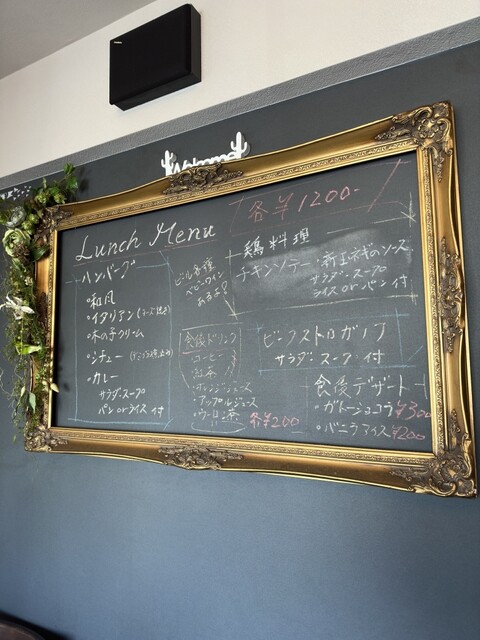 Welcome
Lunch Menu
各¥1200-
ハンバーグ
・和風
・イタリアン
・木の子クリーム
・シチュー
・カレー
サラダ・スープ
パン orライス 付
ビール各種
ベビーワイン
あるよ!
鶏料理
チキンソテー・新玉ネギのソース
サラダ・スープ
ライス or パン 付
食後ドリンク
・コーヒー
・紅茶
・オレンジジュース
・アップルジュース
・ウーロン茶
各¥200
ビーフストロガノフ
サラダ スープ 付
食後デザート
・ガトーショコラ ¥300
・バニラアイス ¥200